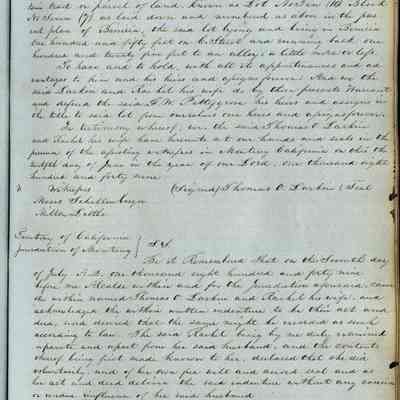 tain tract or parcel of land, known as Lot No Ten (10) Block
No Seven (7) as laid down and numbered as above in the pres
ent plan of Benicia, the said lot lying and being in Benicia
One hundred and fifty feet on C Street and running back one
hundred and twenty five feet to an alley, a little more or less.
To have and to hold, with all its appurtenances and ad
vantages to him and his heirs and assigns forever. And we the
said Larkin and Rachel his wife do by these presents Warrant
and defend the said F. W. Pettygrove his heirs and assigns in
the title to said lot from ourselves our heirs and assigns forever.
In testimony whereof, we, the said Thomas O. Larkin
and Rachel his wife have hereunto set our hands and seals in the
presence of the attesting witnesses in Monterey California on this the
twelfth day of June in the year of our Lord, one thousand eight
hundred and forty nine.
Witnesses (Signed) Thomas O. Larkin (Seal
Moses Schallenberger
Milton Little
Territory of California
jurisdiction of Monterey } S.S.
Be it Remembered that on the Seventh day
of July A.D. one thousand eight hundred and forty nine
before me Alcalde within and for the jurisdiction aforesaid, came
the within named Thomas O. Larkin and Rachel his wife, and
acknowledged the within written indenture to be their act and
deed, and desired that the same might be recorded as such
according to law. The said Rachel being by me duly examined
separate and apart from her said husband, and the contents
thereof being first made known to her, declared that she did
voluntarily, and of her own free will and accord seal and as
her act and deed deliver the said indenture without any coercion
or undue influence of her said husband